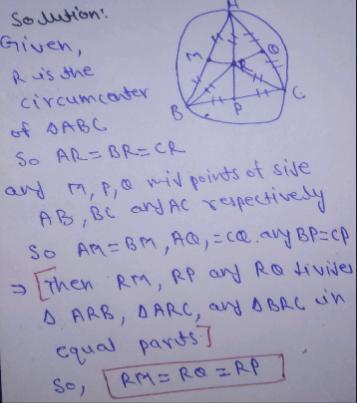 Solution:
Given,
R is the
circumcenter
of ΔABC
So AR=BR=CR
and M,P,Q mid points of side
AB, BC and AC respectively
So AM=BM, AQ,=CQ. any BP=CP
⇒ [Then RM, RP any RQ divides
Δ ARB, ΔARC, any ΔBRC in
equal parts]
So, RM=RQ=RP
M
Q
R
B
P
C